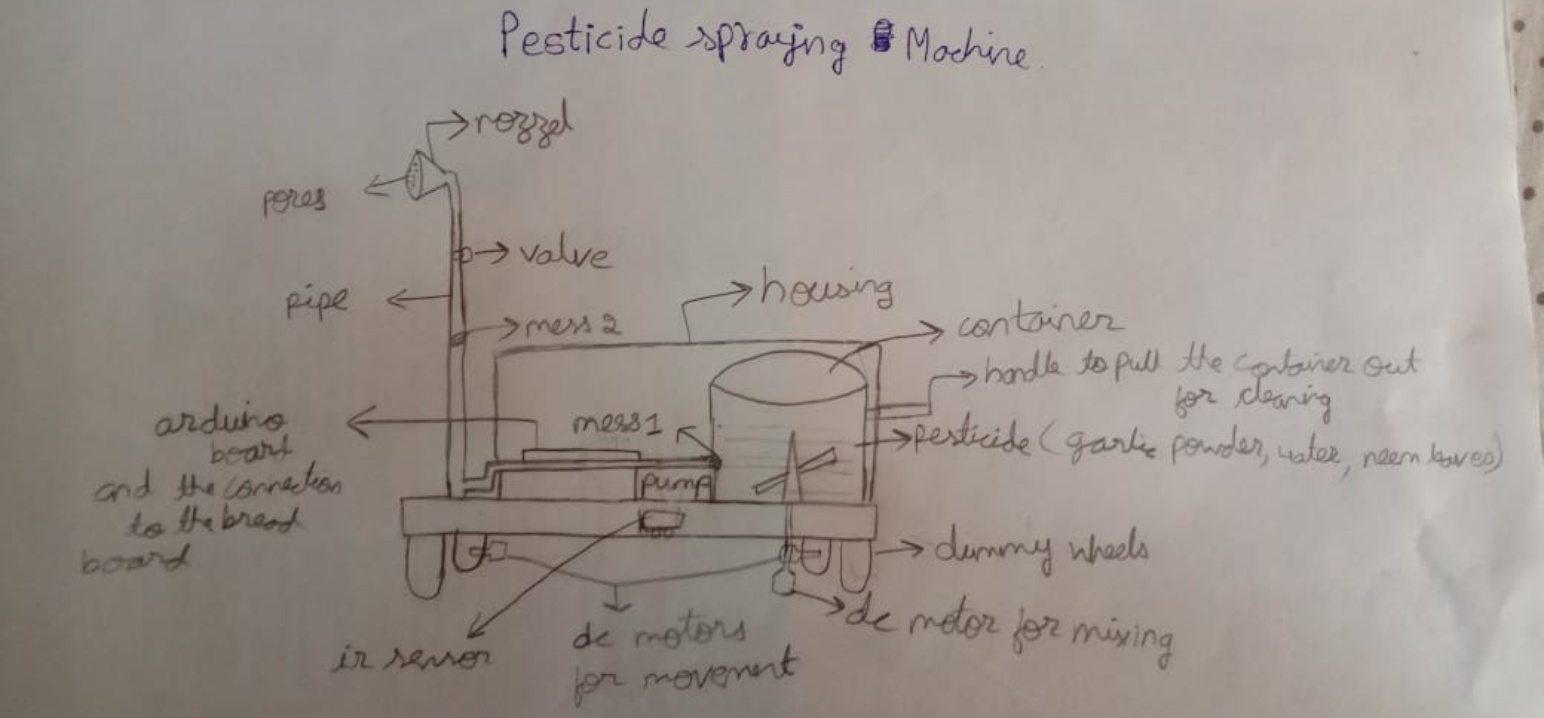 Pesticide spraying Machine.
rozzel
pores
valve
pipe
housing
mess 2
container
handle to pull the container out
for cleaning
arduino
board
and the connection
to the bread
board
mess 1
pesticide (garlic powder, water, neem leaves)
pump
dummy wheels
ir sensor
dc motors
for movement
dc motor for mixing